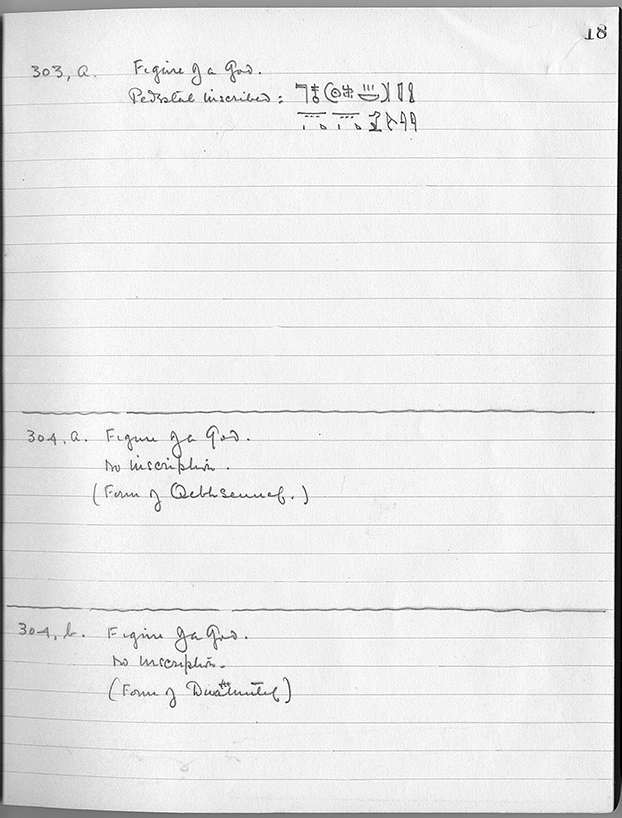 18
303, a. Figure of a God.
Pedestal inscribed : 𓊹𓄤𓍹𓇳𓆣𓏥𓎟𓍺
304, a. Figure of a God.
No inscription.
(Form of Qebhsennef.)
304, b. Figure of a God.
No inscription.
(Form of Duatmutef)